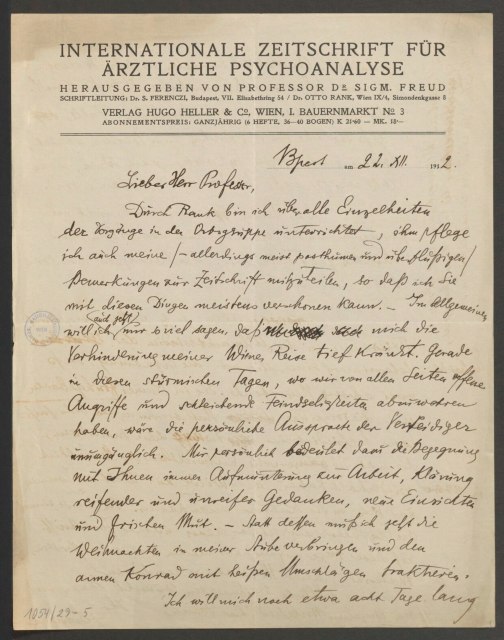 INTERNATIONALE ZEITSCHRIFT FÜR
ÄRZTLICHE PSYCHOANALYSE
HERAUSGEGEBEN VON PROFESSOR DR. SIGM. FREUD
SCHRIFTLEITUNG: Dr. S. FERENCZI, Budapest, VII. Elisabethring 54 / Dr. OTTO RANK, Wien IX/4, Simondenkgasse 8
VERLAG HUGO HELLER & Co, WIEN, I. BAUERNMARKT No 3
ABONNEMENTSPREIS: GANZJÄHRIG (6 HEFTE, 36—40 BOGEN) K 21·60 — MK. 18·—
Bpest am 22. XII. 1912.
Lieber Herr Professor,
Durch Rank bin ich über alle Einzelheiten
der Vorgänge in der Ortsgruppe unterrichtet, ihm pflege
ich auch meine /—allerdings meist posthumen und überflüssigen/
Bemerkungen zur Zeitschrift mitzuteilen, so daß ich Sie
mit diesen Dingen meistens verschonen kann. – Im Allgemeinen
will ich /auch jetzt/ nur so viel sagen, daß mich die
Verhinderung meiner Wiener Reise tief kränkt. Gerade
in diesen stürmischen Tagen, wo wir von allen Seiten offene
Angriffe und schleichende Feindseligkeiten abzuwehren
haben, wäre die persönliche Aussprache der Verteidiger
unumgänglich. Mir persönlich bedeutet dann die Begegnung
mit Ihnen immer Aufmunterung zur Arbeit, Klärung
reifender und unreifer Gedanken, neue Einsichten
und frischen Mut. – Statt dessen muß ich jetzt die
Weihnachten in meiner Stube verbringen und den
armen Konrad mit heißen Umschlägen traktieren.
Ich will mich noch etwa acht Tage lang
1054/29-5